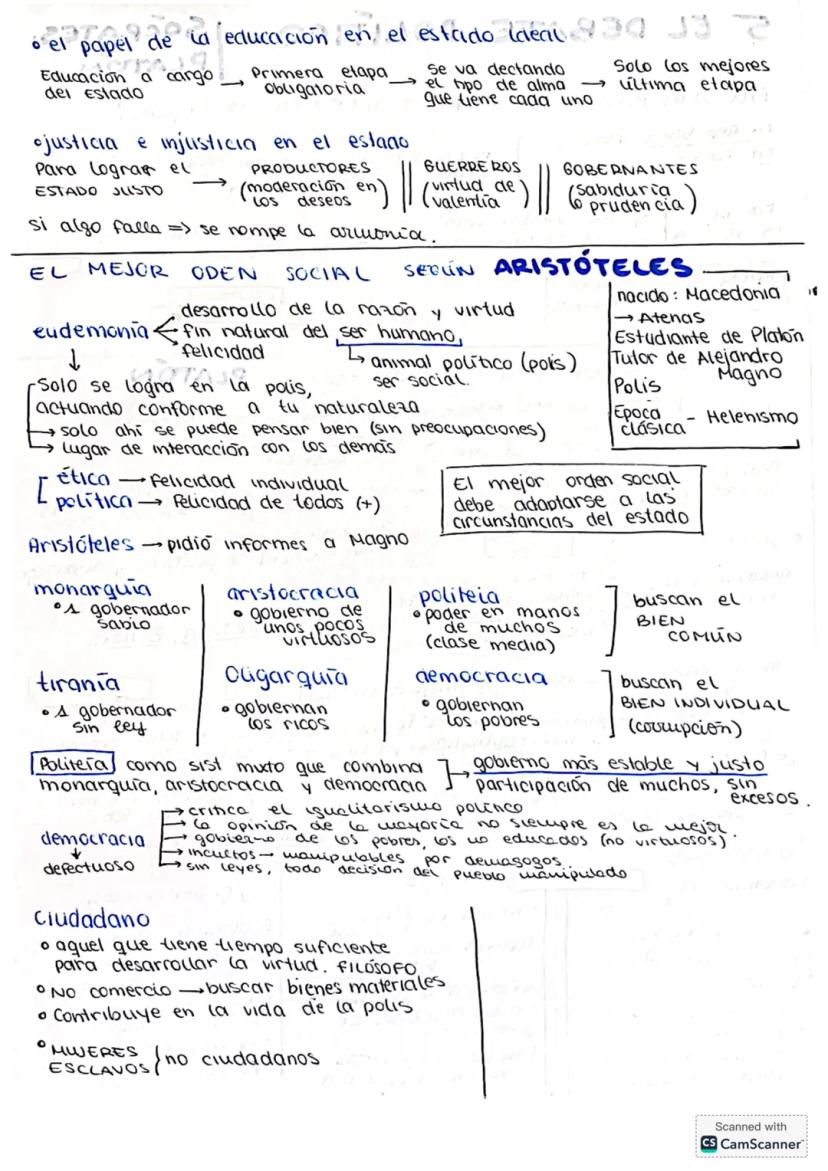 • el papel de la educación en el estado ideal
Educación a cargo del Estado → Primera etapa obligatoria → se va dectando el tipo de alma que tiene cada uno → Solo los mejores última etapa
• justicia e injusticia en el estado
Para lograr el ESTADO JUSTO → PRODUCTORES (moderación en los deseos) || GUERREROS (virtud de valentía) || GOBERNANTES (sabiduría o prudencia)
si algo falla => se rompe la armonía.
EL MEJOR ODEN SOCIAL SEGÚN ARISTÓTELES
nacido: Macedonia
→ Atenas
Estudiante de Platón
Tutor de Alejandro Magno
Polis
Epoca clásica - Helenismo
eudemonía
desarrollo de la razón y virtud
fin natural del ser humano,
felicidad
↳ animal político (polis)
ser social.
Solo se logra en la polis,
actuando conforme a tu naturaleza
→ solo ahí se puede pensar bien (sin preocupaciones)
→ lugar de interacción con los demás
ética → felicidad individual
política → felicidad de todos (+)
El mejor orden social
debe adaptarse a las
circunstancias del estado
Aristóteles → pidió informes a Magno
monarquía
• 1 gobernador
sabio
aristocracia
• gobierno de
unos pocos
virtuosos
politeia
• poder en manos
de muchos
(clase media)
buscan el
BIEN
COMÚN
tiranía
• 1 gobernador
sin ley
Oligarquía
• gobiernan
los ricos
democracia
• gobiernan
los pobres
buscan el
BIEN INDIVIDUAL
(corrupción)
Politeía como sist mixto que combina
monarquía, aristocracia y democracia
→ gobierno más estable y justo
participación de muchos, sin
excesos.
democracia
↓
defectuoso
→ critica el igualitarismo político
→ la opinión de la mayoría no siempre es la mejor.
→ gobierno de los pobres, los no educados (no virtuosos).
→ incultos → manipulables por demagogos.
→ sin leyes, todo decisión del pueblo manipulado
Ciudadano
• aquel que tiene tiempo suficiente
para desarrollar la virtud. FILÓSOFO
• No comercio → buscar bienes materiales
• Contribuye en la vida de la polis
• MUJERES
ESCLAVOS / no ciudadanos
Scanned with
CS CamScanner